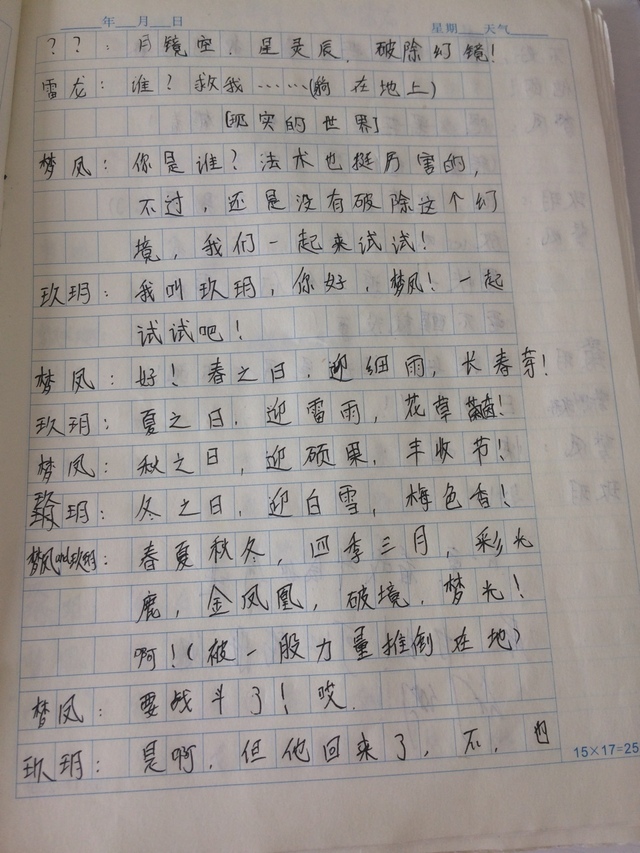 年 月 日 星期 天气
？？：月镜空．星灵辰．破除幻镜！
雷龙：谁？救我……(躺在地上)
[现实的世界]
梦风：你是谁？法术也挺厉害的，
不过，还是没有破除这个幻
境，我们一起来试试！
玖玥：我叫玖玥，你好，梦风！一起
试试吧！
梦风：好！春之日．迎细雨，长春芽！
玖玥：夏之日．迎雷雨，花草！
梦风：秋之日，迎硕果，丰收节！
玖玥：冬之日，迎白雪，梅色香！
梦风and玖玥：春夏秋冬，四季三月，彩光
鹿，金凤凰，破境．梦光！
啊！(被一股力量推倒在地)
梦风：要战斗了！哎．
玖玥：是啊，但他回来了，不，也
15×17=25